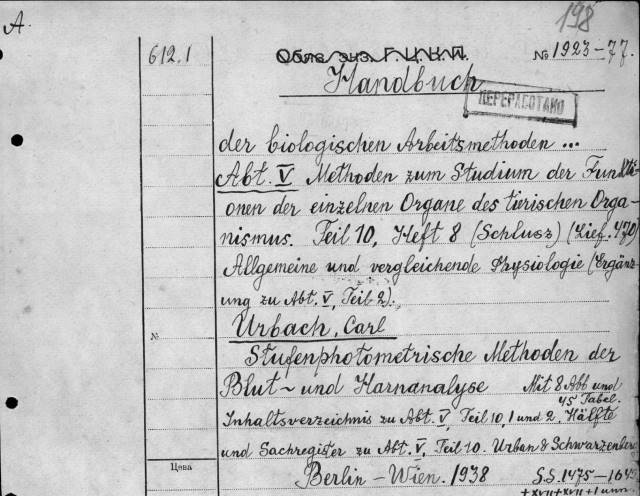 A.
198
612.1
Обяз. экз. Г.Ц.К.П.
№ 1923-77.
Handbuch
ПЕРЕРАБОТАНО
der biologischen Arbeitsmethoden ...
Abt. V Methoden zum Studium der Funkti-
onen der einzelnen Organe des tierischen Orga-
nismus. Teil 10, Heft 8 (Schlusz) (Lief. 470)
Allgemeine und vergleichende Physiologie (Ergänz-
ung zu Abt. V, Teil 2).
Urbach, Carl
№
Stufenphotometrische Methoden der
Blut- und Harnanalyse
Mit 8 Abb und
45 Tabel.
Inhaltsverzeichnis zu Abt. V, Teil 10, 1 und 2, Hälfte
und Sachregister zu Abt. V, Teil 10. Urban & Schwarzenberg
Цена
Berlin - Wien. 1938
S.S. 1475-